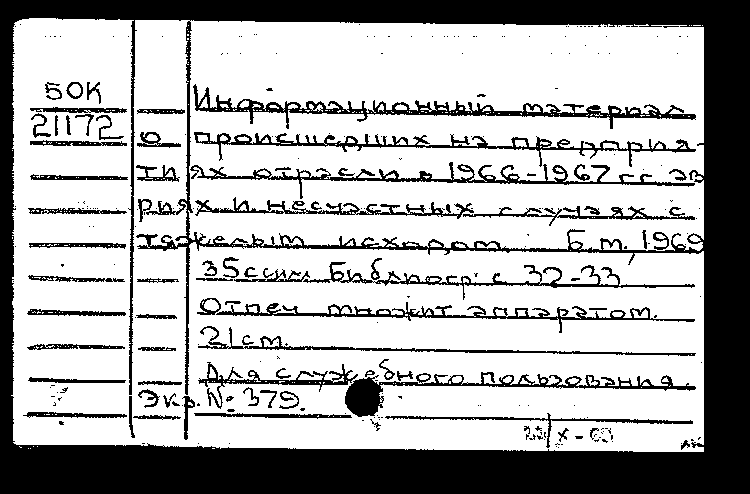 50К
21172
Информационный материал
о происшедших на предприя-
тиях отрасли в 1966-1967 гг. ав
риях и несчастных случаях с
тяжелым исходом. Б.м., 1969
35с. Библиогр: с 32-33
Отпеч множит аппаратом.
21см.
Для служебного пользования.
Экз. №: 379.
X - 69